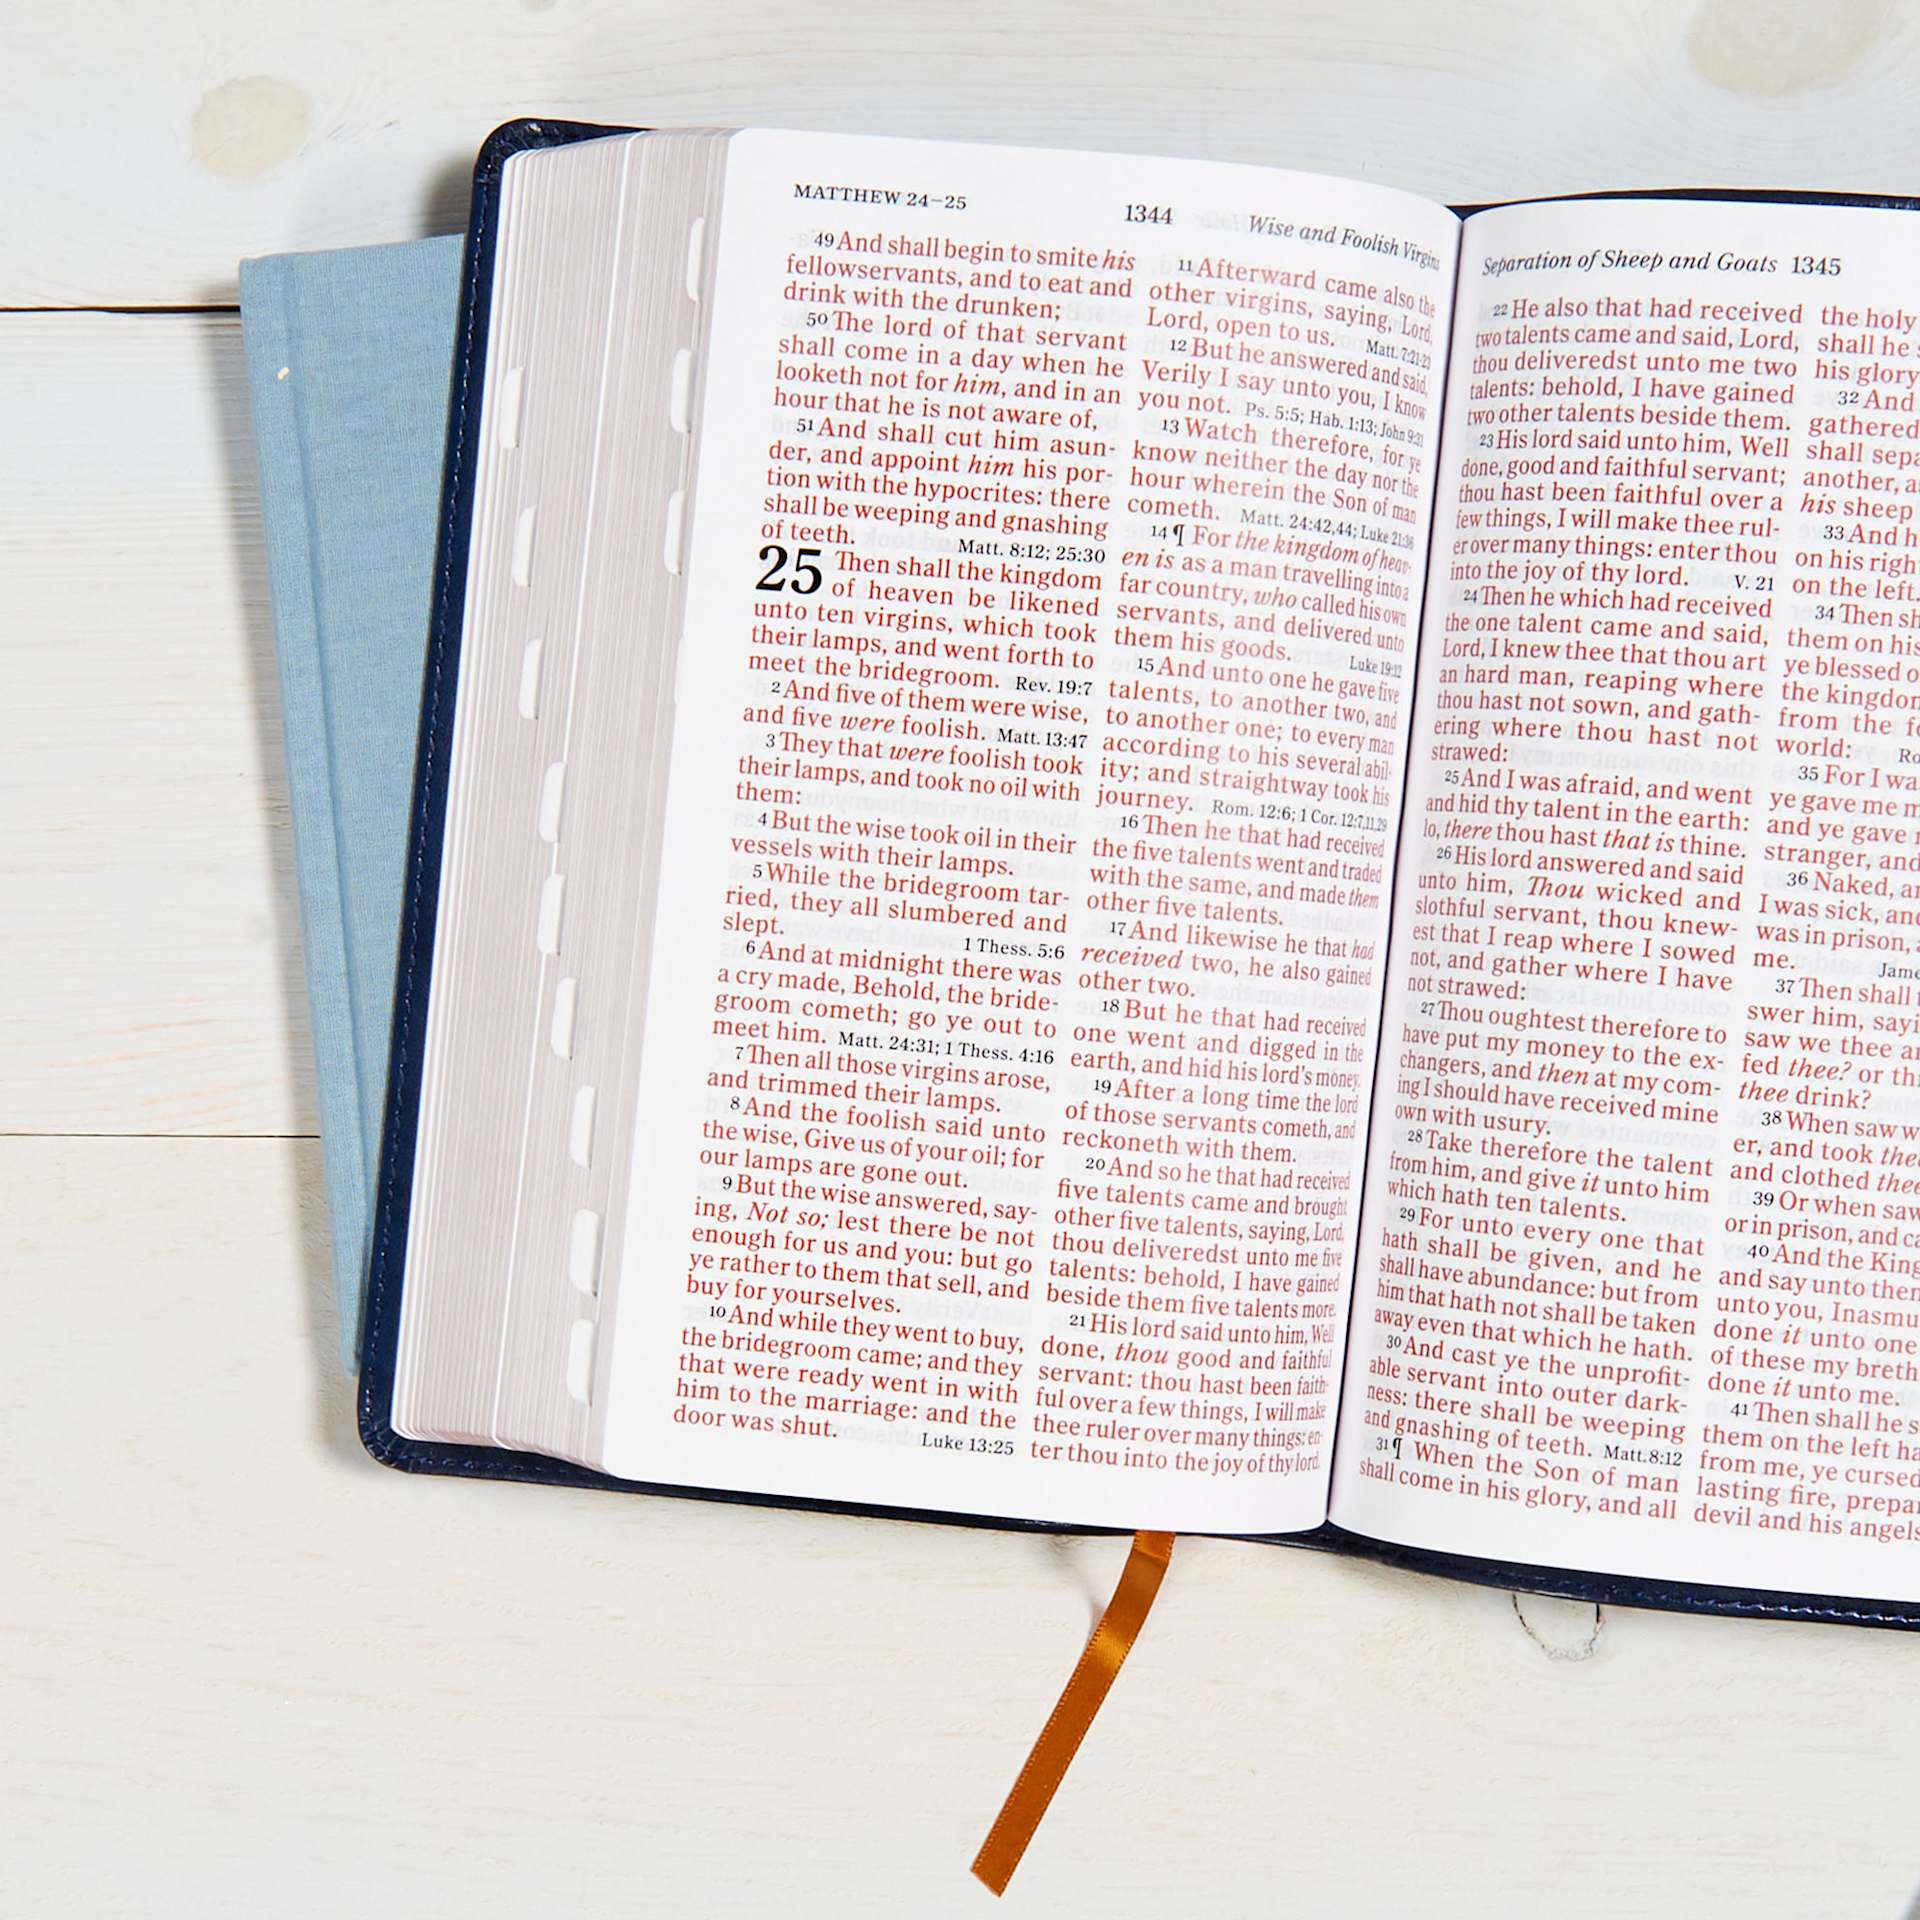 MATTHEW 24–25
1344
Wise and Foolish Virgins
49 And shall begin to smite his
fellowservants, and to eat and
drink with the drunken;
50 The lord of that servant
shall come in a day when he
looketh not for him, and in an
hour that he is not aware of,
51 And shall cut him asun-
der, and appoint him his por-
tion with the hypocrites: there
shall be weeping and gnashing
of teeth. Matt. 8:12; 25:30
25 Then shall the kingdom
of heaven be likened
unto ten virgins, which took
their lamps, and went forth to
meet the bridegroom. Rev. 19:7
2 And five of them were wise,
and five were foolish. Matt. 13:47
3 They that were foolish took
their lamps, and took no oil with
them:
4 But the wise took oil in their
vessels with their lamps.
5 While the bridegroom tar-
ried, they all slumbered and
slept. 1 Thess. 5:6
6 And at midnight there was
a cry made, Behold, the bride-
groom cometh; go ye out to
meet him. Matt. 24:31; 1 Thess. 4:16
7 Then all those virgins arose,
and trimmed their lamps.
8 And the foolish said unto
the wise, Give us of your oil; for
our lamps are gone out.
9 But the wise answered, say-
ing, Not so; lest there be not
enough for us and you: but go
ye rather to them that sell, and
buy for yourselves.
10 And while they went to buy,
the bridegroom came; and they
that were ready went in with
him to the marriage: and the
door was shut. Luke 13:25
11 Afterward came also the
other virgins, saying, Lord,
Lord, open to us. Matt. 7:21-23
12 But he answered and said,
Verily I say unto you, I know
you not. Ps. 5:5; Hab. 1:13; John 9:31
13 Watch therefore, for ye
know neither the day nor the
hour wherein the Son of man
cometh. Matt. 24:42,44; Luke 21:36
14 ¶ For the kingdom of heav-
en is as a man travelling into a
far country, who called his own
servants, and delivered unto
them his goods. Luke 19:12
15 And unto one he gave five
talents, to another two, and
to another one; to every man
according to his several abil-
ity; and straightway took his
journey. Rom. 12:6; 1 Cor. 12:7,11,29
16 Then he that had received
the five talents went and traded
with the same, and made them
other five talents.
17 And likewise he that had
received two, he also gained
other two.
18 But he that had received
one went and digged in the
earth, and hid his lord's money.
19 After a long time the lord
of those servants cometh, and
reckoneth with them.
20 And so he that had received
five talents came and brought
other five talents, saying, Lord,
thou deliveredst unto me five
talents: behold, I have gained
beside them five talents more.
21 His lord said unto him, Well
done, thou good and faithful
servant: thou hast been faith-
ful over a few things, I will make
thee ruler over many things: en-
ter thou into the joy of thy lord.
Separation of Sheep and Goats 1345
22 He also that had received
two talents came and said, Lord,
thou deliveredst unto me two
talents: behold, I have gained
two other talents beside them.
23 His lord said unto him, Well
done, good and faithful servant;
thou hast been faithful over a
few things, I will make thee rul-
er over many things: enter thou
into the joy of thy lord. V. 21
24 Then he which had received
the one talent came and said,
Lord, I knew thee that thou art
an hard man, reaping where
thou hast not sown, and gath-
ering where thou hast not
strawed:
25 And I was afraid, and went
and hid thy talent in the earth:
lo, there thou hast that is thine.
26 His lord answered and said
unto him, Thou wicked and
slothful servant, thou knew-
est that I reap where I sowed
not, and gather where I have
not strawed:
27 Thou oughtest therefore to
have put my money to the ex-
changers, and then at my com-
ing I should have received mine
own with usury.
28 Take therefore the talent
from him, and give it unto him
which hath ten talents.
29 For unto every one that
hath shall be given, and he
shall have abundance: but from
him that hath not shall be taken
away even that which he hath.
30 And cast ye the unprofit-
able servant into outer dark-
ness: there shall be weeping
and gnashing of teeth. Matt. 8:12
31 ¶ When the Son of man
shall come in his glory, and all
the holy
shall he
his glory
32 And
gathered
shall sepa
another, a
his sheep
33 And h
on his righ
on the left.
34 Then sh
them on his
ye blessed o
the kingdom
from the fo
world: Ro
35 For I wa
ye gave me m
and ye gave
stranger, and
36 Naked, an
I was sick, and
was in prison,
me. Jame
37 Then shall
swer him, sayi
saw we thee an
fed thee? or thi
thee drink?
38 When saw w
er, and took thee
and clothed thee
39 Or when saw
or in prison, and ca
40 And the King
and say unto them
unto you, Inasmu
done it unto one
of these my breth
done it unto me.
41 Then shall he s
them on the left ha
from me, ye cursed
lasting fire, prepar
devil and his angels